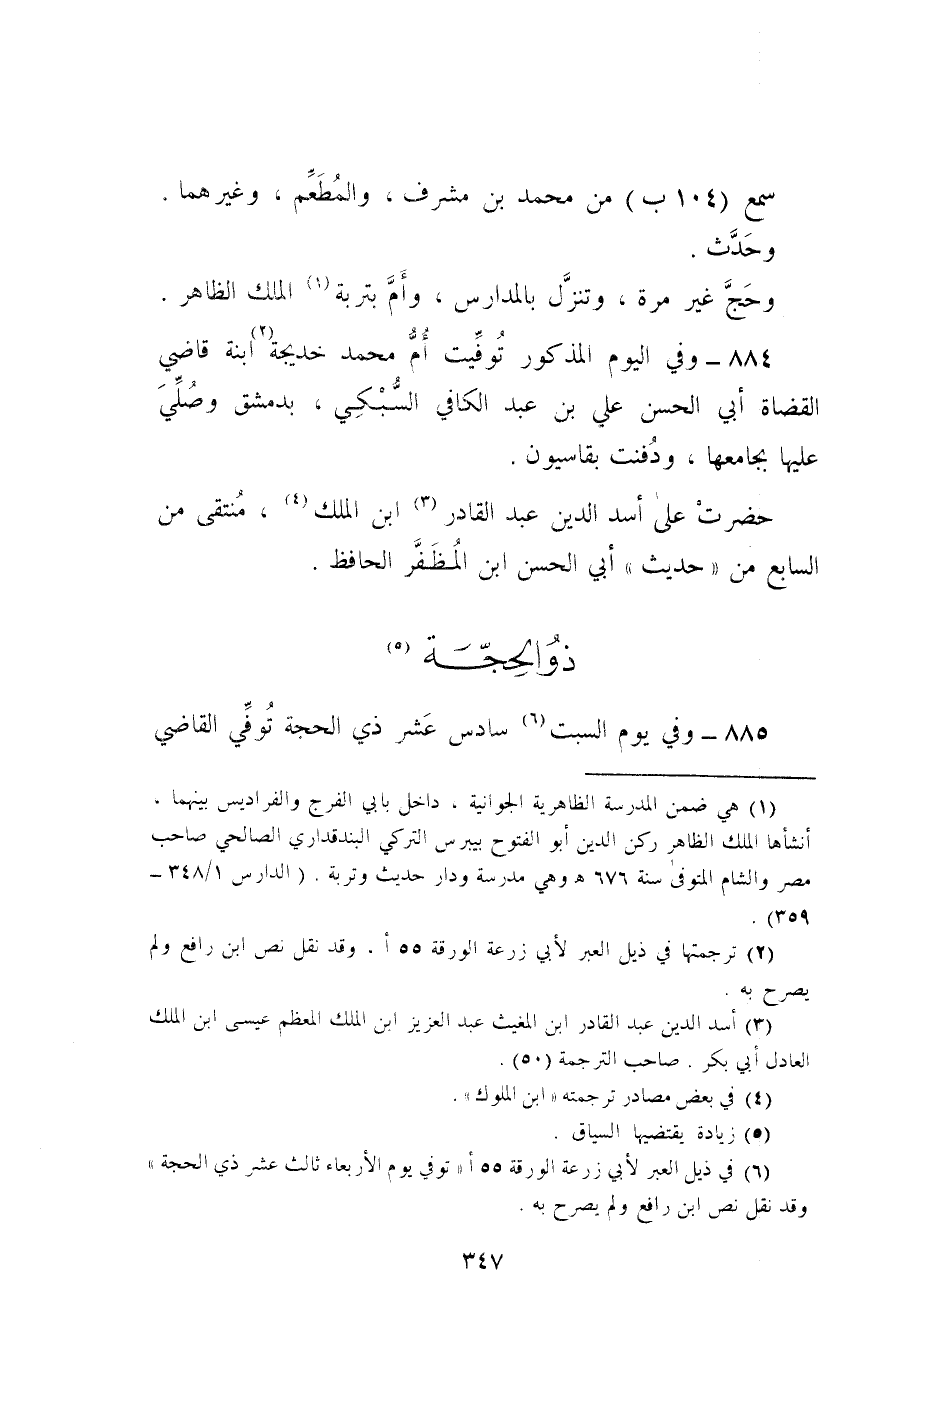 سمع (١٠٤ ب) من محمد بن مشرف ، والمُطَعِّم ، وغيرهما .
وحَدَّث .
وحَجَّ غير مرة ، وتنزَّل بالمدارس ، وأَمَّ بتربة (١) الملك الظاهر .
٨٨٤ ـ وفي اليوم المذكور تُوفِّيت أُمُّ محمد خديجة (٢) ابنة قاضي
القضاة أبي الحسن علي بن عبد الكافي السُّبْكي ، بدمشق وصُلِّيَ
عليها بجامعها ، ودُفنت بقاسيون .
حضرتْ على أسد الدين عبد القادر (٣) ابن الملك (٤) ، مُنتقى من
السابع من « حديث » أبي الحسن ابن المُظَفَّر الحافظ .
ذوُ الحِجّة (٥)
٨٨٥ ـ وفي يوم السبت (٦) سادس عَشر ذي الحجة تُوفِّي القاضي
(١) هي ضمن المدرسة الظاهرية الجوانية ، داخل بابي الفرج والفراديس بينهما ،
أنشأها الملك الظاهر ركن الدين أبو الفتوح بيبرس التركي البندقداري الصالحي صاحب
مصر والشام المتوفى سنة ٦٧٦ هـ وهي مدرسة ودار حديث وتربة . ( الدارس ٣٤٨/١ ـ
٣٥٩) .
(٢) ترجمتها في ذيل العبر لأبي زرعة الورقة ٥٥ أ . وقد نقل نص ابن رافع ولم
يصرح به .
(٣) أسد الدين عبد القادر ابن المغيث عبد العزيز ابن الملك المعظم عيسى ابن الملك
العادل أبي بكر . صاحب الترجمة (٥٠) .
(٤) في بعض مصادر ترجمته « ابن الملوك » .
(٥) زيادة يقتضيها السياق .
(٦) في ذيل العبر لأبي زرعة الورقة ٥٥ أ « توفي يوم الأربعاء ثالث عشر ذي الحجة »
وقد نقل نص ابن رافع ولم يصرح به .
٣٤٧